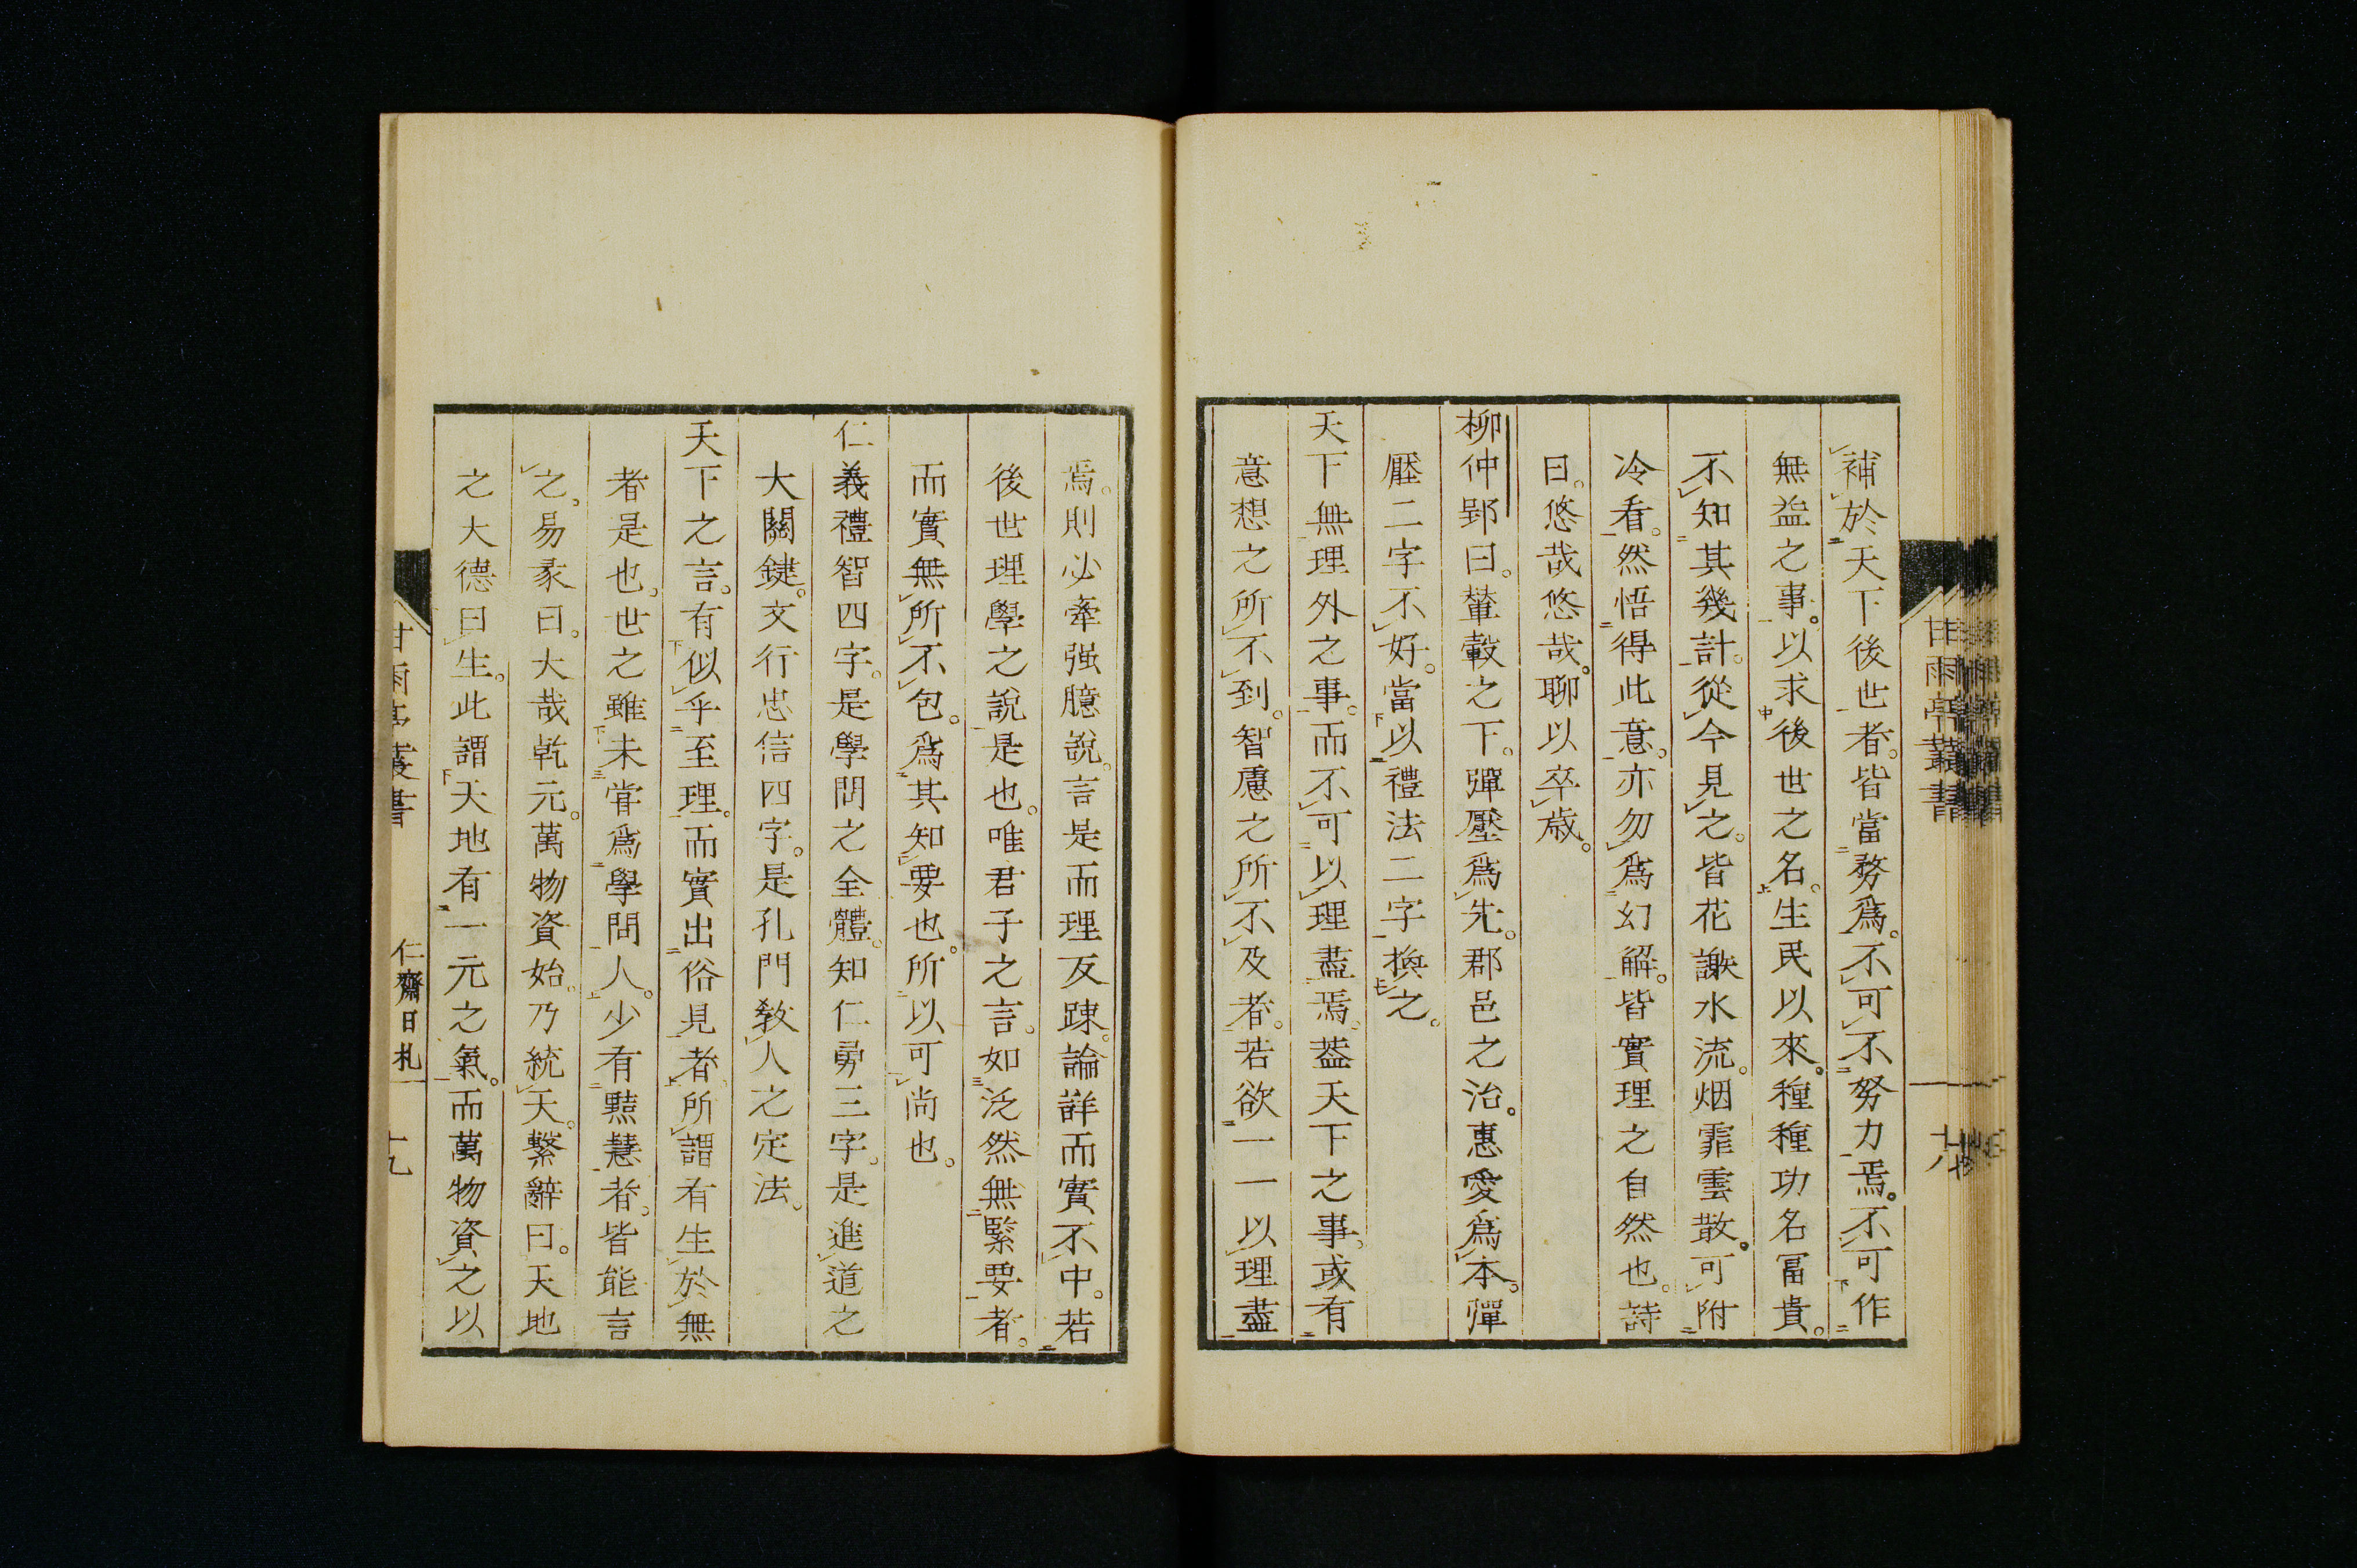 補於天下後世者。皆當務爲。不可不努力焉。不可作
無益之事。以求後世之名。生民以來。種種功名冨貴。
不知其幾計。從今見之。皆花謝水流。烟霏雲散。可附
冷看。然悟得此意。亦勿爲幻解。皆實理之自然也。詩
曰。悠哉悠哉。聊以卒歳。
柳仲郢曰。輦轂之下。彈壓爲先。郡邑之治。惠愛爲本。彈
壓二字不好。當以禮法二字換之。
天下無理外之事。而不可以理盡焉。葢天下之事。或有
意想之所不到。智慮之所不及者。若欲一一以理盡
焉。則必牽强臆說。言是而理反踈。論詳而實不中。若
後世理學之說是也。唯君子之言。如泛然無緊要者。
而實無所不包。爲其知要也。所以可尚也。
仁義禮智四字。是學問之全體。知仁勇三字。是進道之
大關鍵。文行忠信四字。是孔門敎人之定法。
天下之言。有似乎至理。而實出俗見者。所謂有生於無
者是也。世之雖未甞爲學問人。少有黠慧者。皆能言
之。易彖曰。大哉乾元。萬物資始。乃統天。繫辭曰。天地
之大德曰生。此謂天地有一元之氣。而萬物資之以
甘雨亭叢書
十八
甘雨亭叢書
仁齋日札
十九